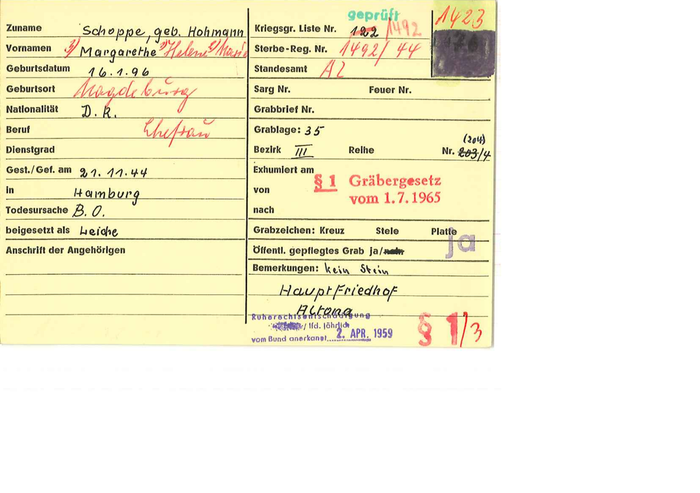 Zuname Schoppe, geb. Hohmann
Vornamen 1/ Margarethe 2/ Helene 3/ Marie
Geburtsdatum 16.1.96
Geburtsort Magdeburg
Nationalität D.R.
Beruf Ehefrau
Dienstgrad
Gest./Gef. am 21.11.44
in Hamburg
Todesursache B.O.
beigesetzt als Leiche
Anschrift der Angehörigen
geprüft
Kriegsgr. Liste Nr. 122 1492
1423
Sterbe-Reg. Nr. 1492/44
Standesamt
Sarg Nr. Feuer Nr.
Grabbrief Nr.
Grablage: 35
(204)
Bezirk III Reihe Nr. 203/4
Exhumiert am
von
nach
§ 1 Gräbergesetz
vom 1.7.1965
Grabzeichen: Kreuz Stele Platte
ja
Öffentl. gepflegtes Grab ja/nein
Bemerkungen: kein Stein
Hauptfriedhof
Altona
Ruherechtsentschädigung
/ lfd. jährlich
vom Bund anerkannt 2. APR. 1959
§ 1/3